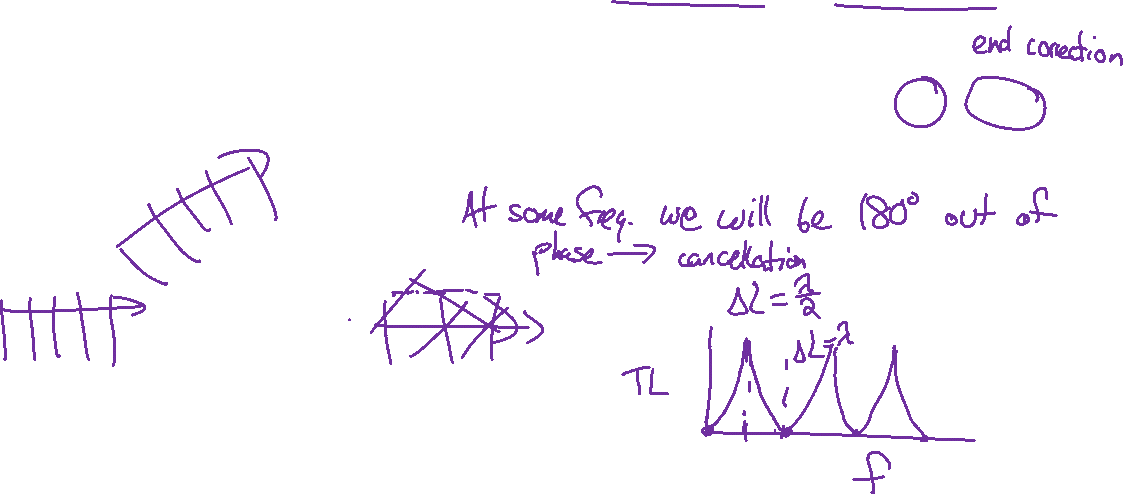 end correction
At some freq. we will be 180° out of
phase → cancellation
ΔL = λ/2
ΔL=λ
TL
f